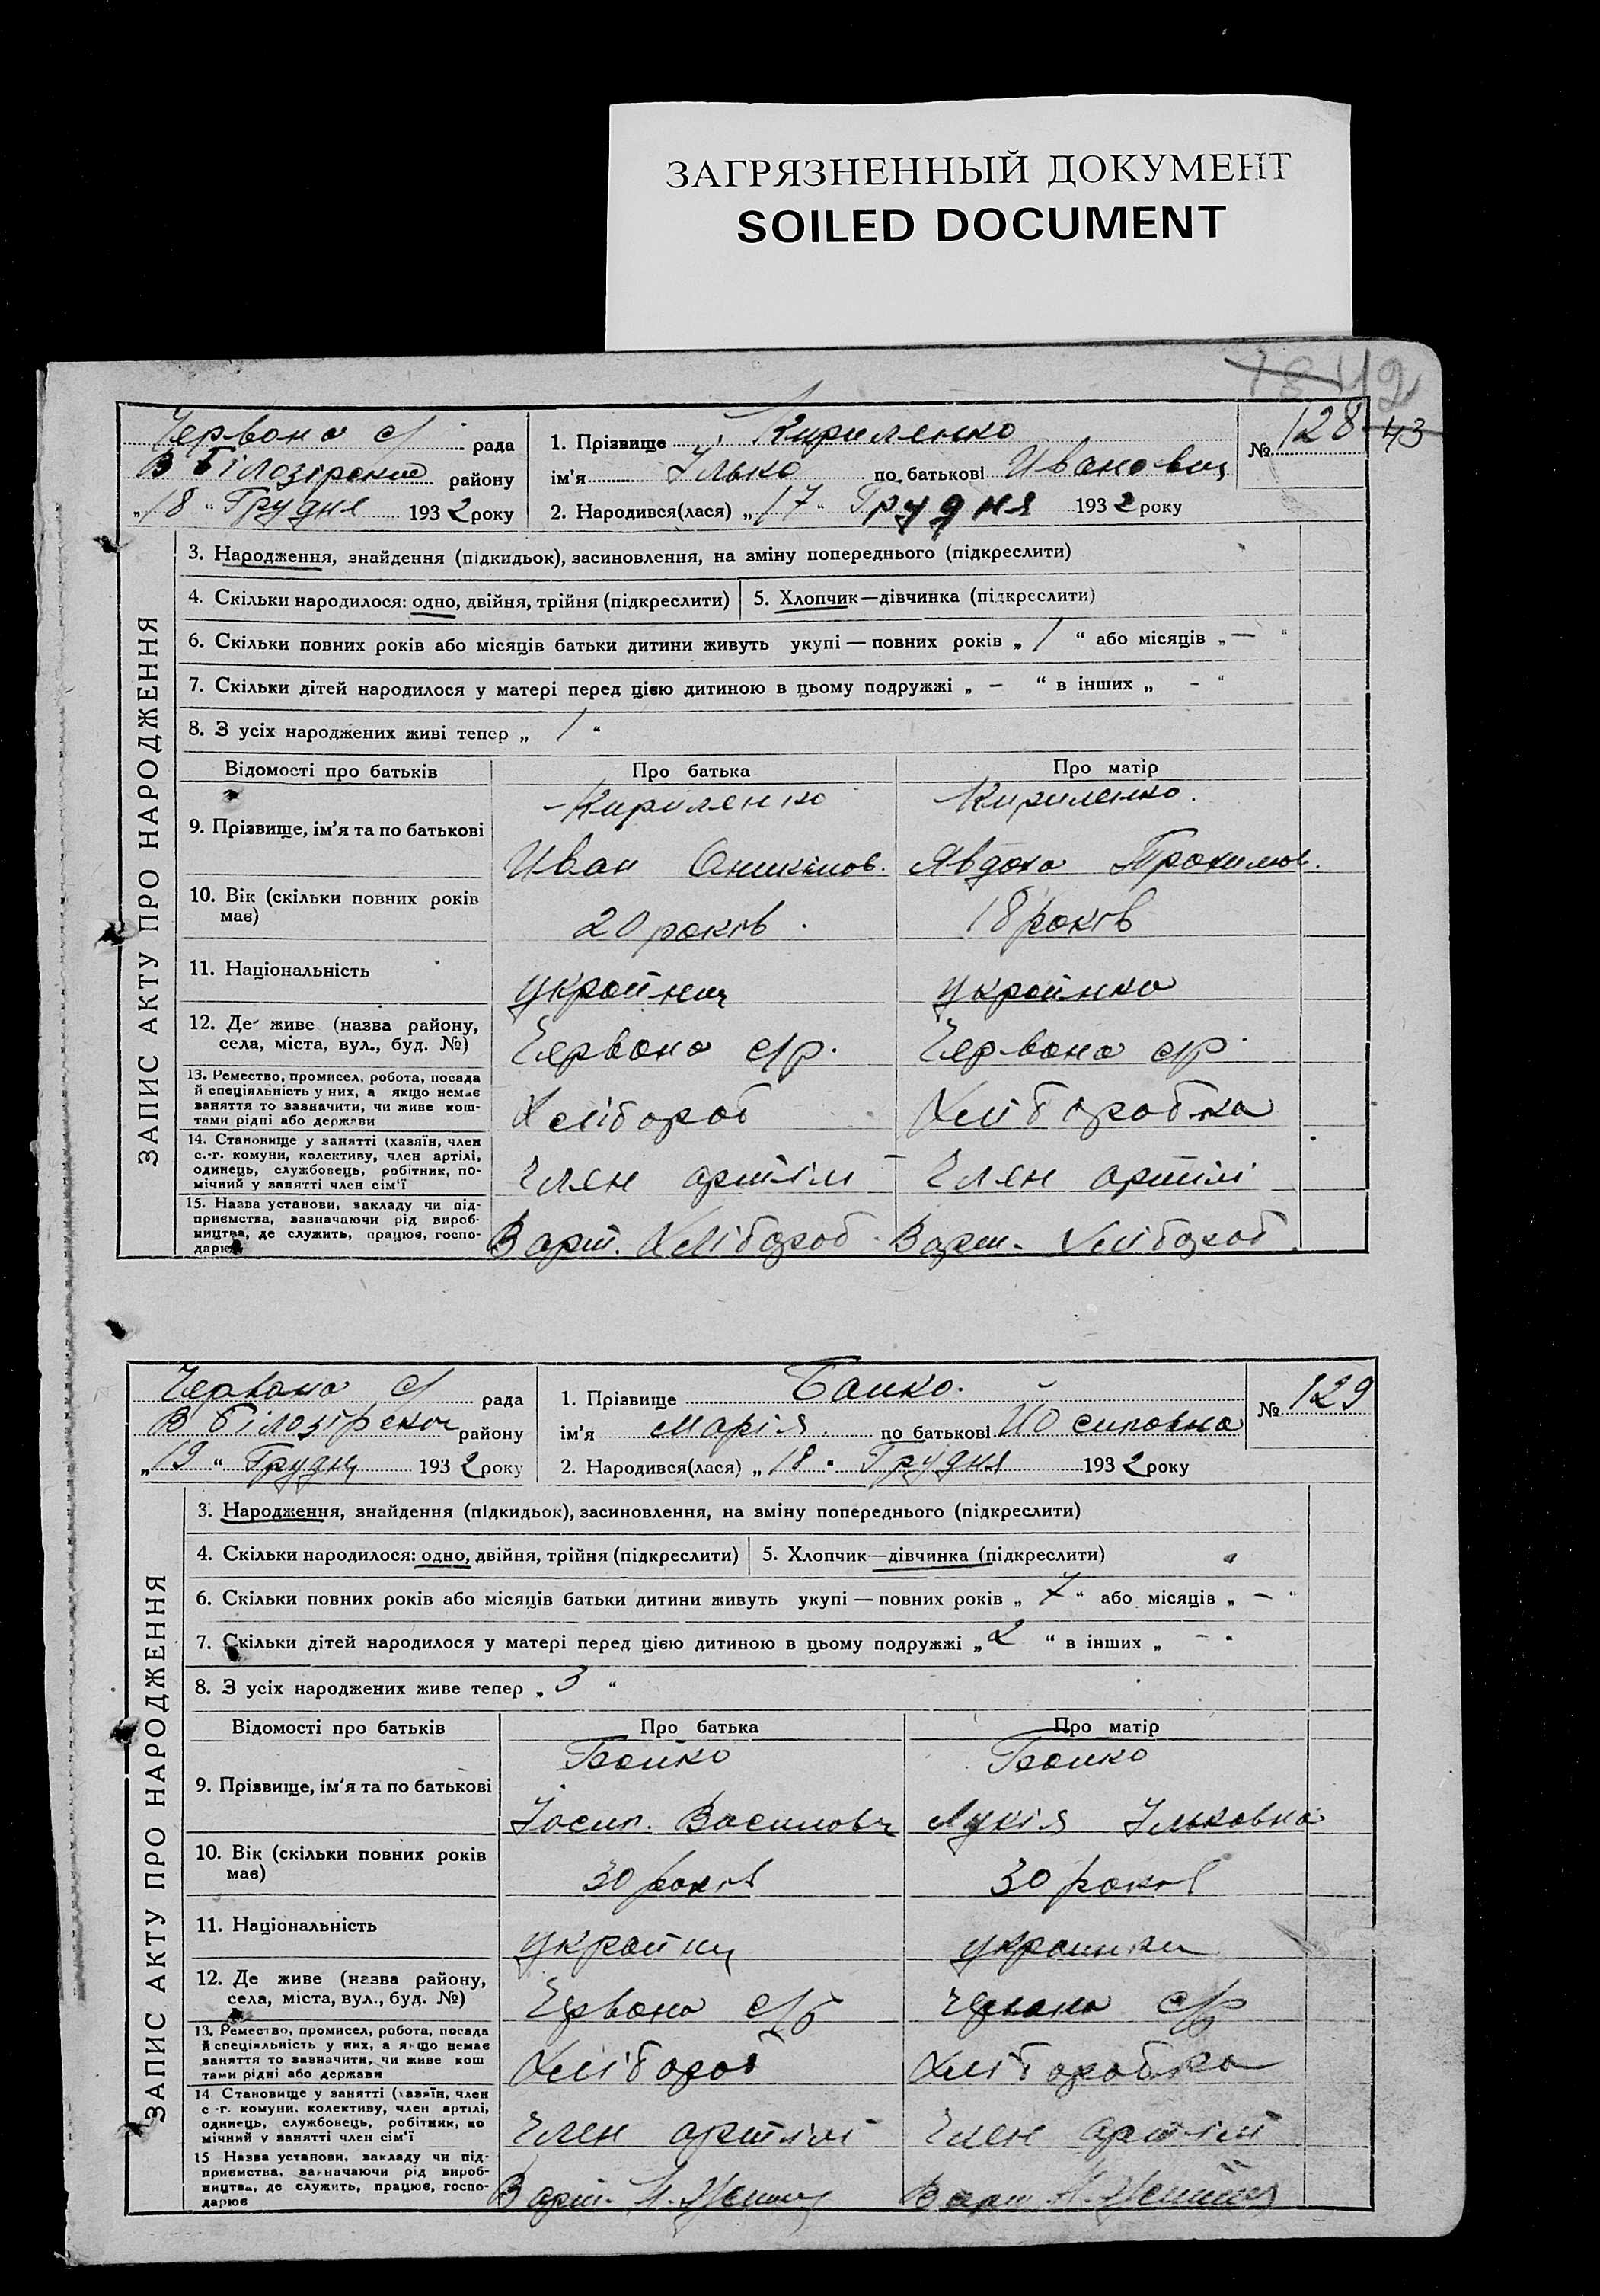 ЗАГРЯЗНЕННЫЙ ДОКУМЕНТ
SOILED DOCUMENT
42
43
Червона с/ рада
В Білозірский району
„18“ Грудня 1932 року
1. Прізвище Кириленко
ім'я Ілько по батькові Иванович
2. Народився(лася) „17“ Грудня 1932 року
№ 128
ЗАПИС АКТУ ПРО НАРОДЖЕННЯ
3. Народження, знайдення (підкидьок), засиновлення, на зміну попереднього (підкреслити)
4. Скільки народилося: одно, двійня, трійня (підкреслити) 5. Хлопчик—дівчинка (підкреслити)
6. Скільки повних років або місяців батьки дитини живуть укупі — повних років „ 1 “ або місяців „ — “
7. Скільки дітей народилося у матері перед цією дитиною в цьому подружжі „ – “ в інших „ – “
8. З усіх народжених живі тепер „ 1 “
Відомості про батьків Про батька Про матір
9. Прізвище, ім'я та по батькові
Кириленко Кириленко.
Иван Явдоха
10. Вік (скільки повних років має)
20 років. 18 років
11. Національність
українец українка
12. Де живе (назва району, села, міста, вул., буд. №)
Червона с/р. Червона с/р.
13. Ремество, промисел, робота, посада
й спеціяльність у них, а якщо немає
заняття то зазначити, чи живе кош-
тами рідні або держави
Хлібороб Хліборобка
14. Становище у занятті (хазяїн, член
с.-г. комуни, колективу, член артілі,
одинець, службовець, робітник, по-
мічний у занятті член сім'ї
Член артіли Член артілі
15. Назва установи, закладу чи під-
приємства, зазначаючи рід вироб-
ництва, де служить, працює, госпо-
дарює
В арт. Хлібороб. В арт. Хлібороб.
Червона с/ рада
В Білозірском району
„19“ Грудня 1932 року
1. Прізвище Бойко.
ім'я Марія по батькові Йосиповна
2. Народився(лася) „18“ Грудня 1932 року
№ 129
ЗАПИС АКТУ ПРО НАРОДЖЕННЯ
3. Народження, знайдення (підкидьок), засиновлення, на зміну попереднього (підкреслити)
4. Скільки народилося: одно, двійня, трійня (підкреслити) 5. Хлопчик—дівчинка (підкреслити)
6. Скільки повних років або місяців батьки дитини живуть укупі — повних років „ 7 “ або місяців „ — “
7. Скільки дітей народилося у матері перед цією дитиною в цьому подружжі „ 2 “ в інших „ – “
8. З усіх народжених живе тепер „ 3 “
Відомості про батьків Про батька Про матір
9. Прізвище, ім'я та по батькові
Бойко Бойко
Іосип. Василович Лукія Ільковна
10. Вік (скільки повних років має)
30 років 30 років
11. Національність
українец українка
12. Де живе (назва району, села, міста, вул., буд. №)
Червона с/р Червона с/р
13. Ремество, промисел, робота, посада
й спеціяльність у них, а якщо немає
заняття то зазначити, чи живе кош
тами рідні або держави
Хлібороб Хліборобка
14 Становище у занятті (хазяїн, член
с-г. комуни, колективу, член артілі,
одинець, службовець, робітник, по
мічний у занятті член сім'ї
Член артілі Член артілі
15 Назва установи, закладу чи під-
приємства, зазначаючи рід вироб-
ництва, де служить, працює, госпо-
дарює
В арт. В арт